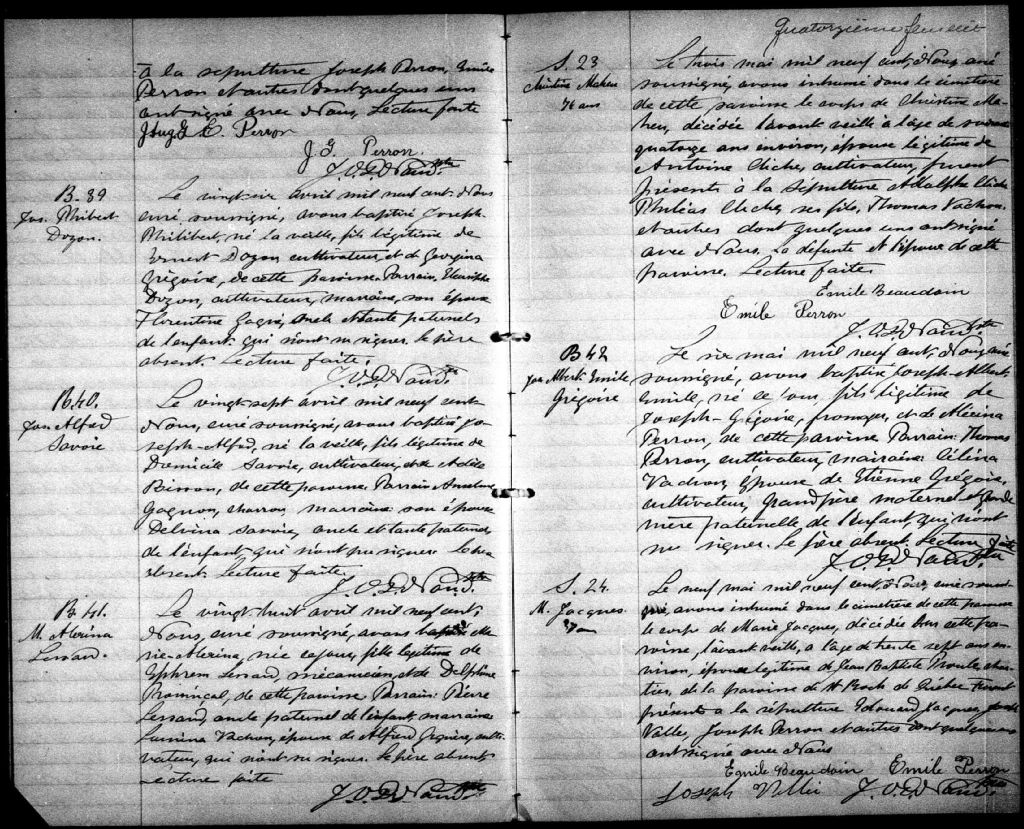 à la sépulture Joseph Perron, Emile
Perron et autres dont quelques uns
ont signé avec Nous, Lecture faite
J. G. Perron
B. 39
Jos. Philibert
Dozon.
Le vingt-six avril mil neuf cent, Nous
curé soussigné, avons baptisé Joseph-
Philibert, né la veille, fils légitime de
Ernest Dozon cultivateur, et de Georgina
Grégoire, de cette paroisse. Parrain
Dozon, cultivateur, marraine, son épouse
Florentine Gagné, oncle et tante paternels
de l'enfant qui n'ont su signer, le père
absent. Lecture faite.
B. 40.
Jos. Alfred
Savoie
Le vingt-sept avril mil neuf cent
Nous, curé soussigné, avons baptisé Jo-
seph-Alfred, né la veille, fils légitime de
Domicile Savoie, cultivateur, et de Adèle
Bisson, de cette paroisse. Parrain Anselme
Gagnon, charron, marraine son épouse
Delvina Savoie, oncle et tante paternels
de l'enfant qui n'ont pu signer. Le père
absent. Lecture faite.
B. 41.
M. Alerina
Lessard.
Le vingt huit avril mil neuf cent,
Nous, curé soussigné, avons baptisé Ma-
rie-Alerina, née ce jour, fille légitime de
Ephrem Lessard, mécanicien, et de Delphine
Provinçal, de cette paroisse Parrain: Pierre
Lessard, oncle paternel de l'enfant, marraine
Vachon, épouse de Alfred culti-
vateur, qui n'ont su signer. Le père absent
Lecture faite
Quatorzième feuillet
S. 23
Christine Maheu
76 ans
Le trois mai mil neuf cent, Nous, curé
soussigné, avons inhumé dans le cimetière
de cette paroisse le corps de Christine Ma-
heu, décédée l'avant veille à l'age de
quatorze ans environ, épouse légitime de
Antoine Cliche, cultivateur, furent
présents à la sépulture Adolphe Cliche
Philéas Cliche, ses fils, Thomas Vachon
et autres dont quelques uns ont signé
avec Nous. La défunte et l'époux de cette
paroisse. Lecture faite.
Emile Beaudoin
Emile Perron
B 42
Jos Albert Emile
Grégoire
Le six mai mil neuf cent, Nous, curé
soussigné, avons baptisé Joseph-Albert
Emile, né ce jour fils légitime de
Joseph-Grégoire, fromager, et de Alexina
Perron, de cette paroisse Parrain: Thomas
Perron, cultivateur, marraine Célina
Vachon, épouse de Etienne Grégoire,
cultivateur, grand père maternel et grand
mère paternelle de l'enfant, qui n'ont
su signer. Le père absent. Lecture faite
S. 24.
M. Jacques
37 ans
Le neuf mai mil neuf cent, Nous, curé soussi-
gné, avons inhumé dans le cimetière de cette paroisse
le corps de Marie Jacques, décédée dans cette pa-
roisse, l'avant veille, à l'age de trente sept ans en-
viron, épouse légitime de Jean Baptiste
de la paroisse de St Roch de Québec Furent
présents à la sépulture Edouard Jacques, Joseph
Vallée, Joseph Perron et autres dont quelques uns
ont signé avec Nous
Emile Beaudoin Emile Perron
Joseph